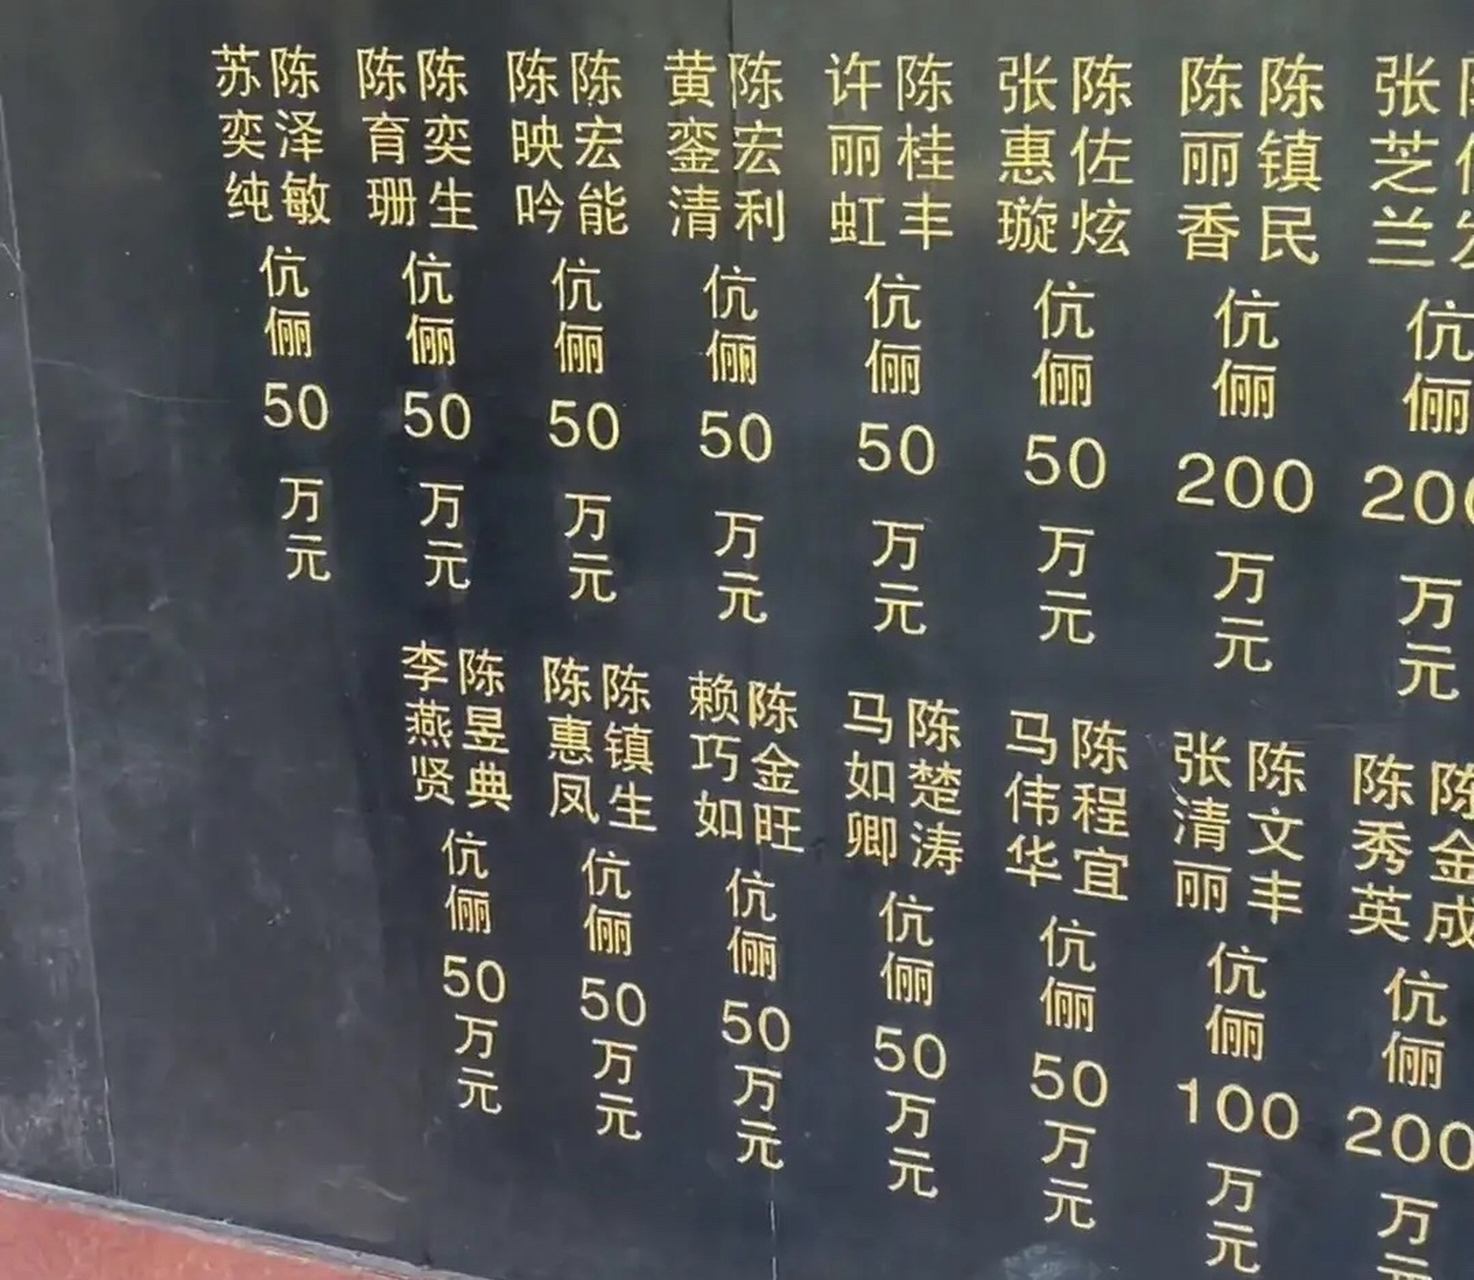 张芝兰
伉俪200万元
陈镇民
陈丽香
伉俪200万元
陈佐炫
张惠璇
伉俪50万元
陈桂丰
许丽虹
伉俪50万元
陈宏利
黄銮清
伉俪50万元
陈宏能
陈映吟
伉俪50万元
陈奕生
陈育珊
伉俪50万元
陈泽敏
苏奕纯
伉俪50万元
陈金成
陈秀英
伉俪200万元
陈文丰
张清丽
伉俪100万元
陈程宜
马伟华
伉俪50万元
陈楚涛
马如卿
伉俪50万元
陈金旺
赖巧如
伉俪50万元
陈镇生
陈惠凤
伉俪50万元
陈昱典
李燕贤
伉俪50万元